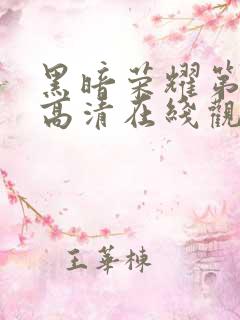 黑暗荣耀第
高清在线觀
王華棟